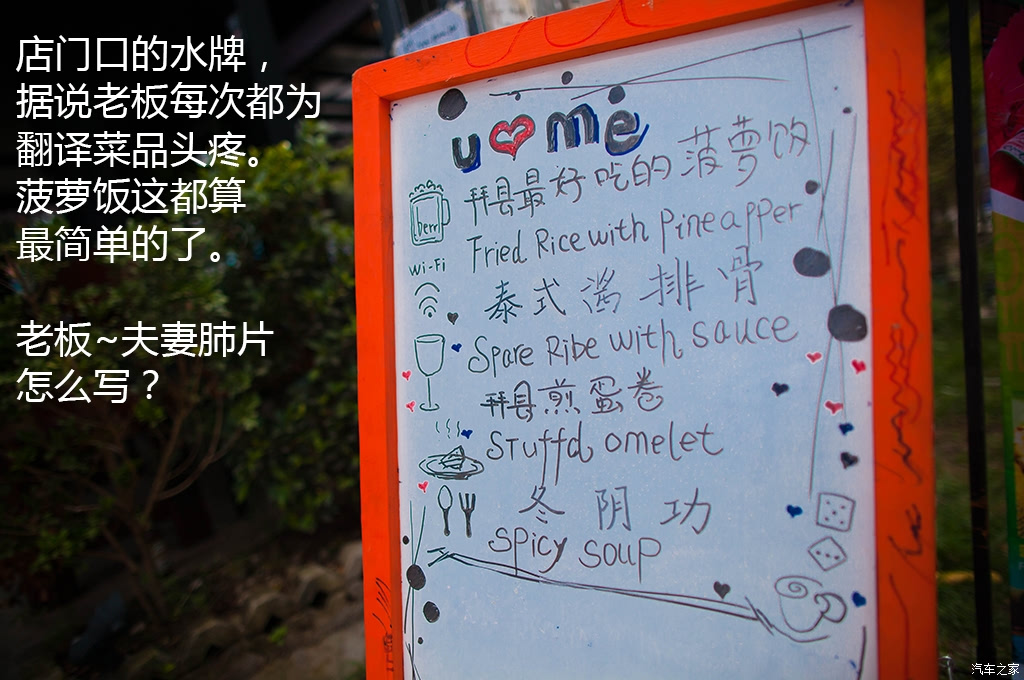 店门口的水牌，
据说老板每次都为
翻译菜品头疼。
菠萝饭这都算
最简单的了。
老板~夫妻肺片
怎么写？
u me
拜县最好吃的菠萝饭
Fried Rice with Pineapper
Wi-Fi
泰式酱排骨
Spare Ribe with sauce
拜县煎蛋卷
Stuffd omelet
冬阴功
Spicy soup
汽车之家